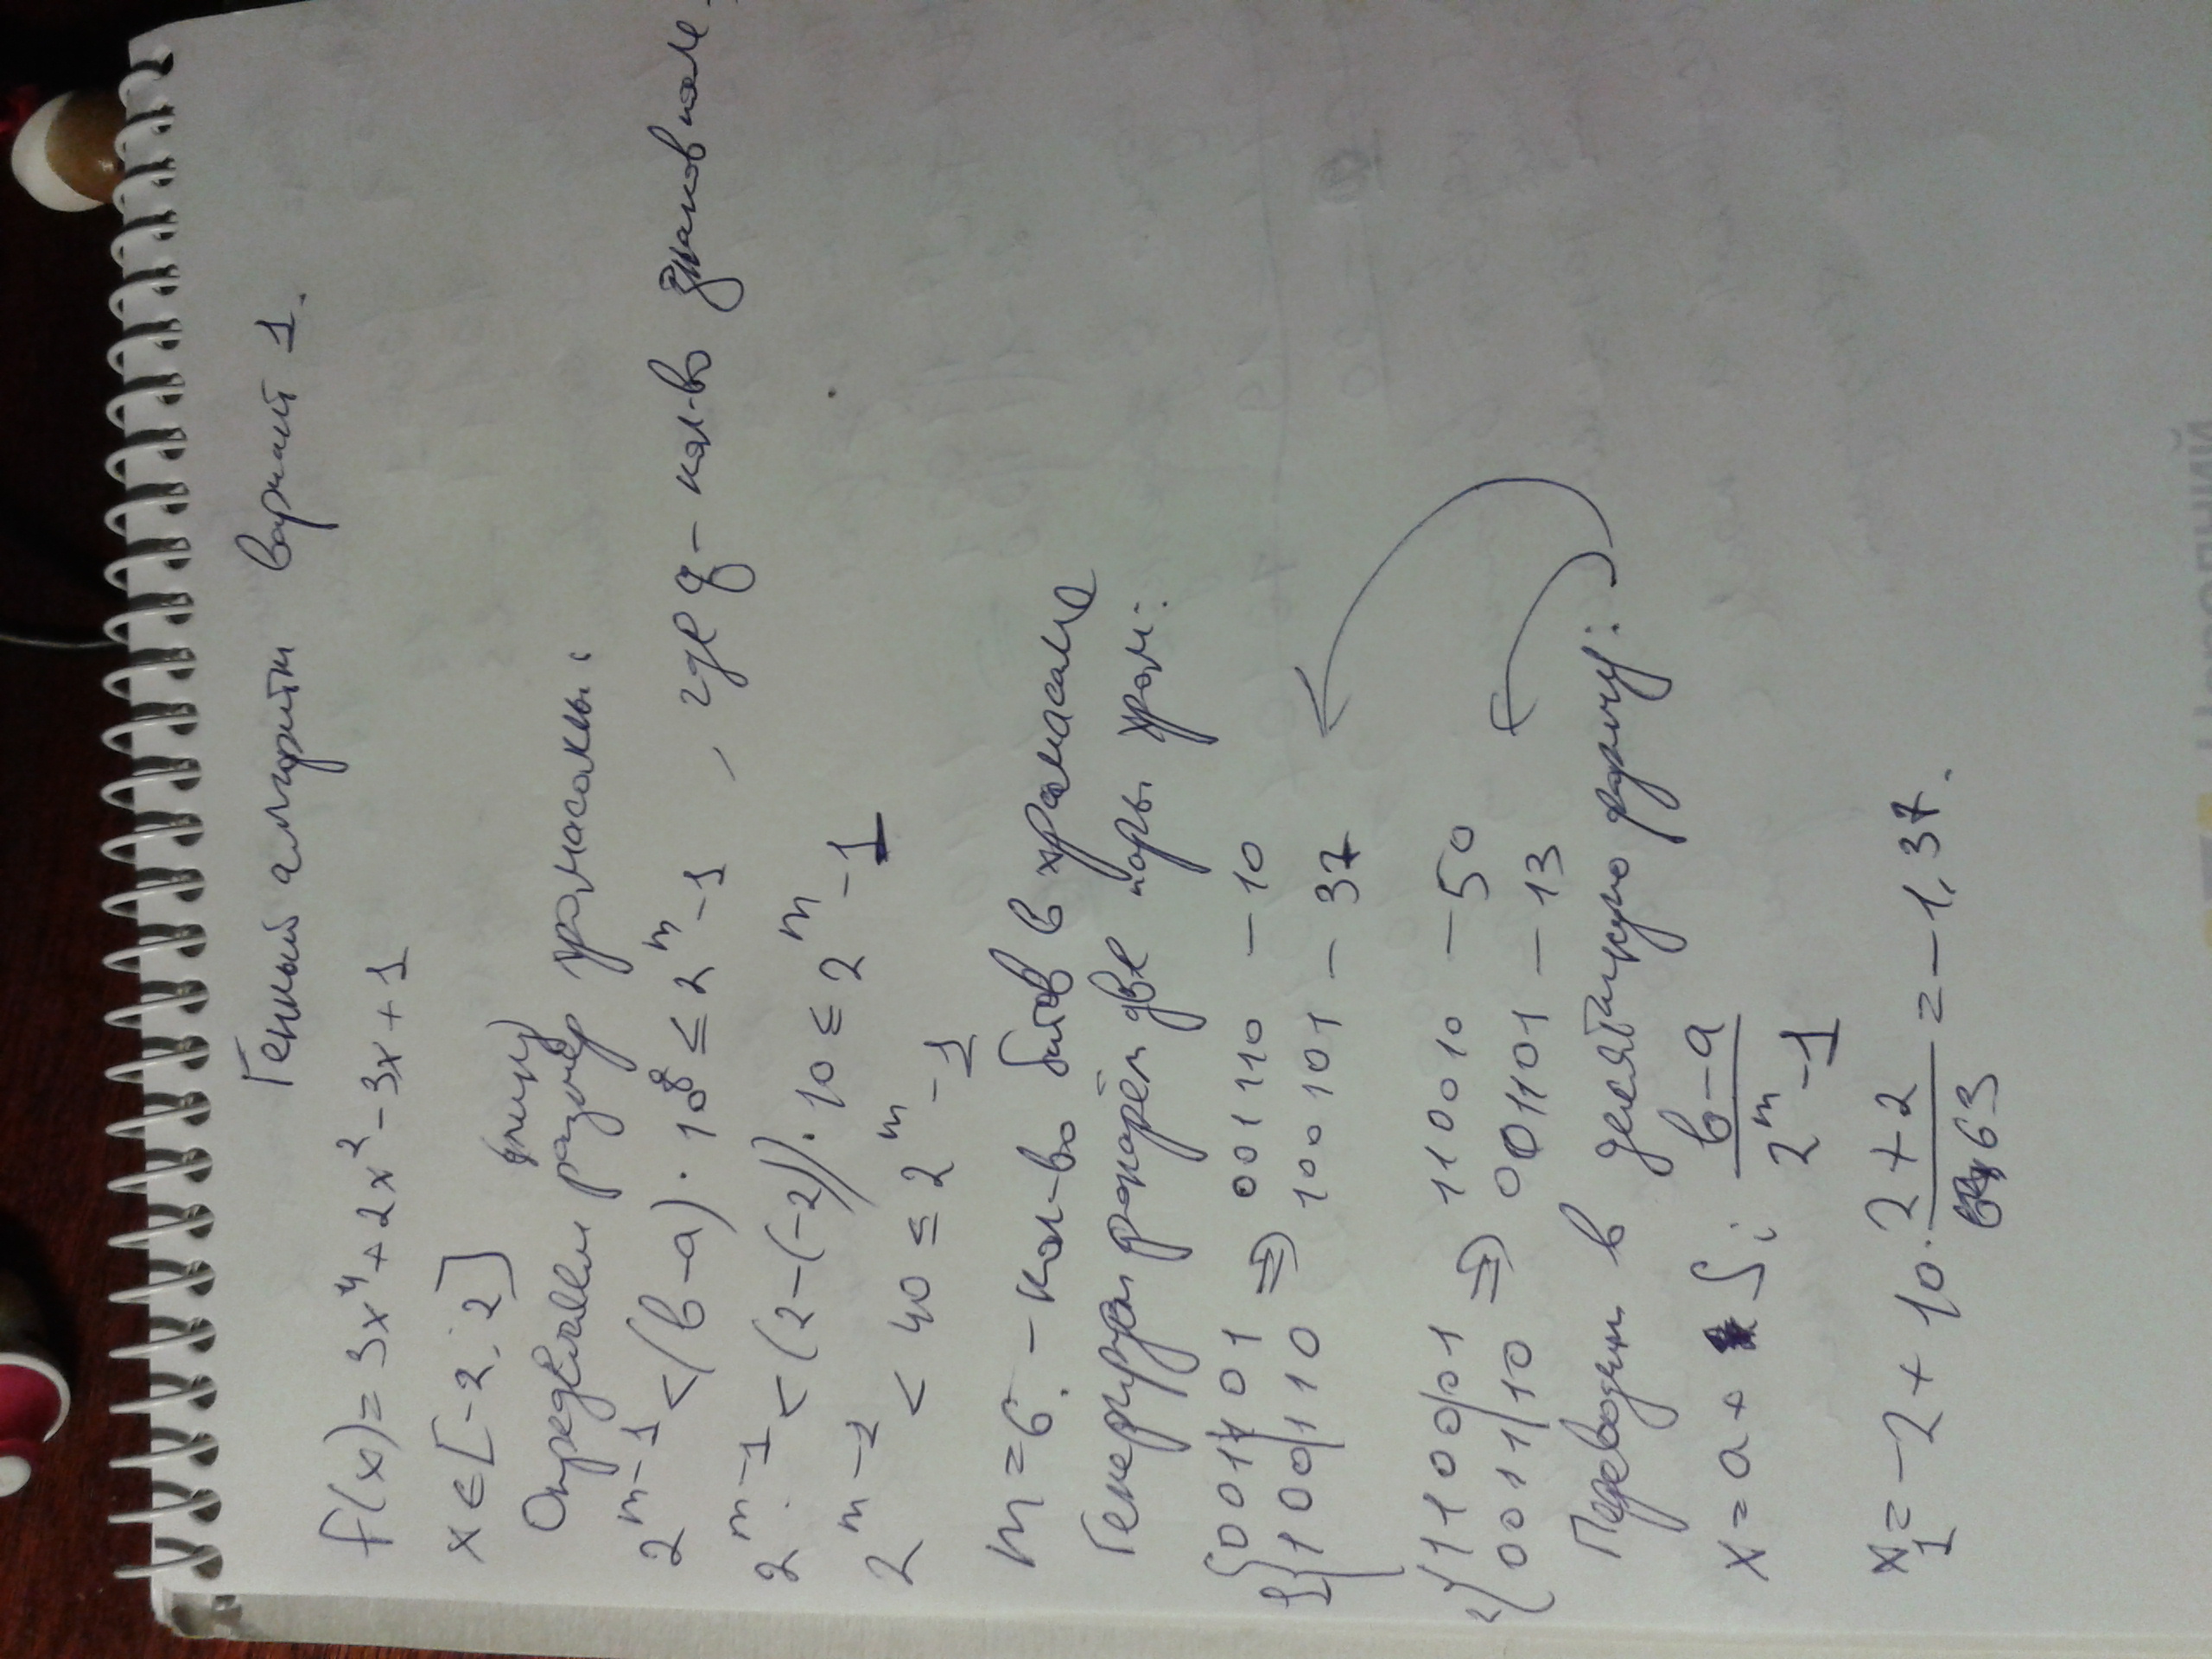 Генный алгоритм вариант 1.
f(x) = 3x⁴ + 2x² - 3x + 1
x ∈ [-2; 2]
(длину)
Определяем размер хромасомы:
2^(m-1) < (b-a) · 10^q ≤ 2^m - 1, где q - кол-во знаков после
2^(m-1) < (2-(-2)) · 10 ≤ 2^m - 1
2^(m-1) < 40 ≤ 2^m - 1
m = 6. - кол-во битов в хромасоме
Генерируем две пары хром:
1 { 001|101 ⇒ 001110 - 10
100|110 100101 - 37
2 { 1100|01 ⇒ 110010 - 50
0011|10 001101 - 13
Переводим в десятичную форму:
x = a + S_i (b-a)/(2^m - 1)
x_1 = -2 + 10 · (2+2)/63 = -1,37.